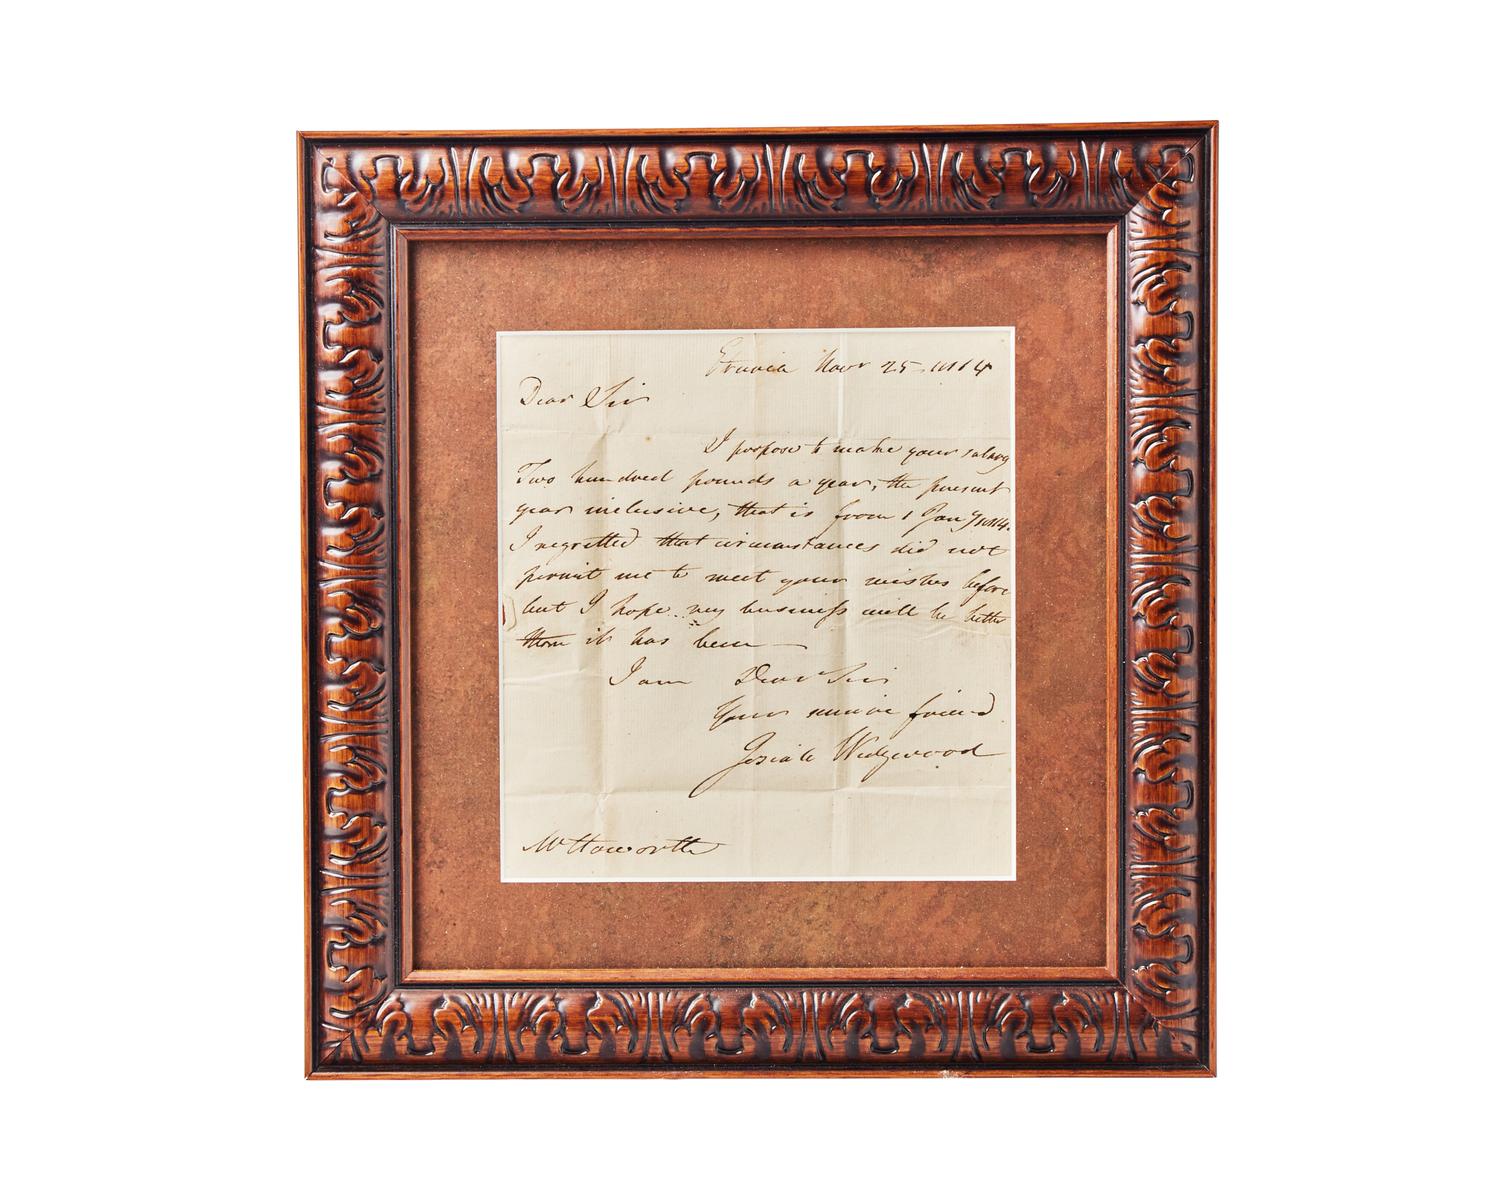 Etruria Novr 25. 1814
Dear Sir
I propose to make your salary
Two hundred pounds a year, the present
year inclusive, that is from 1 Jany 1814.
I regretted that circumstances did not
permit me to meet your wishes before
but I hope my business will be better
than it has been —
I am Dear Sir
Your sincere friend
Josiah Wedgwood
Mr Haworth